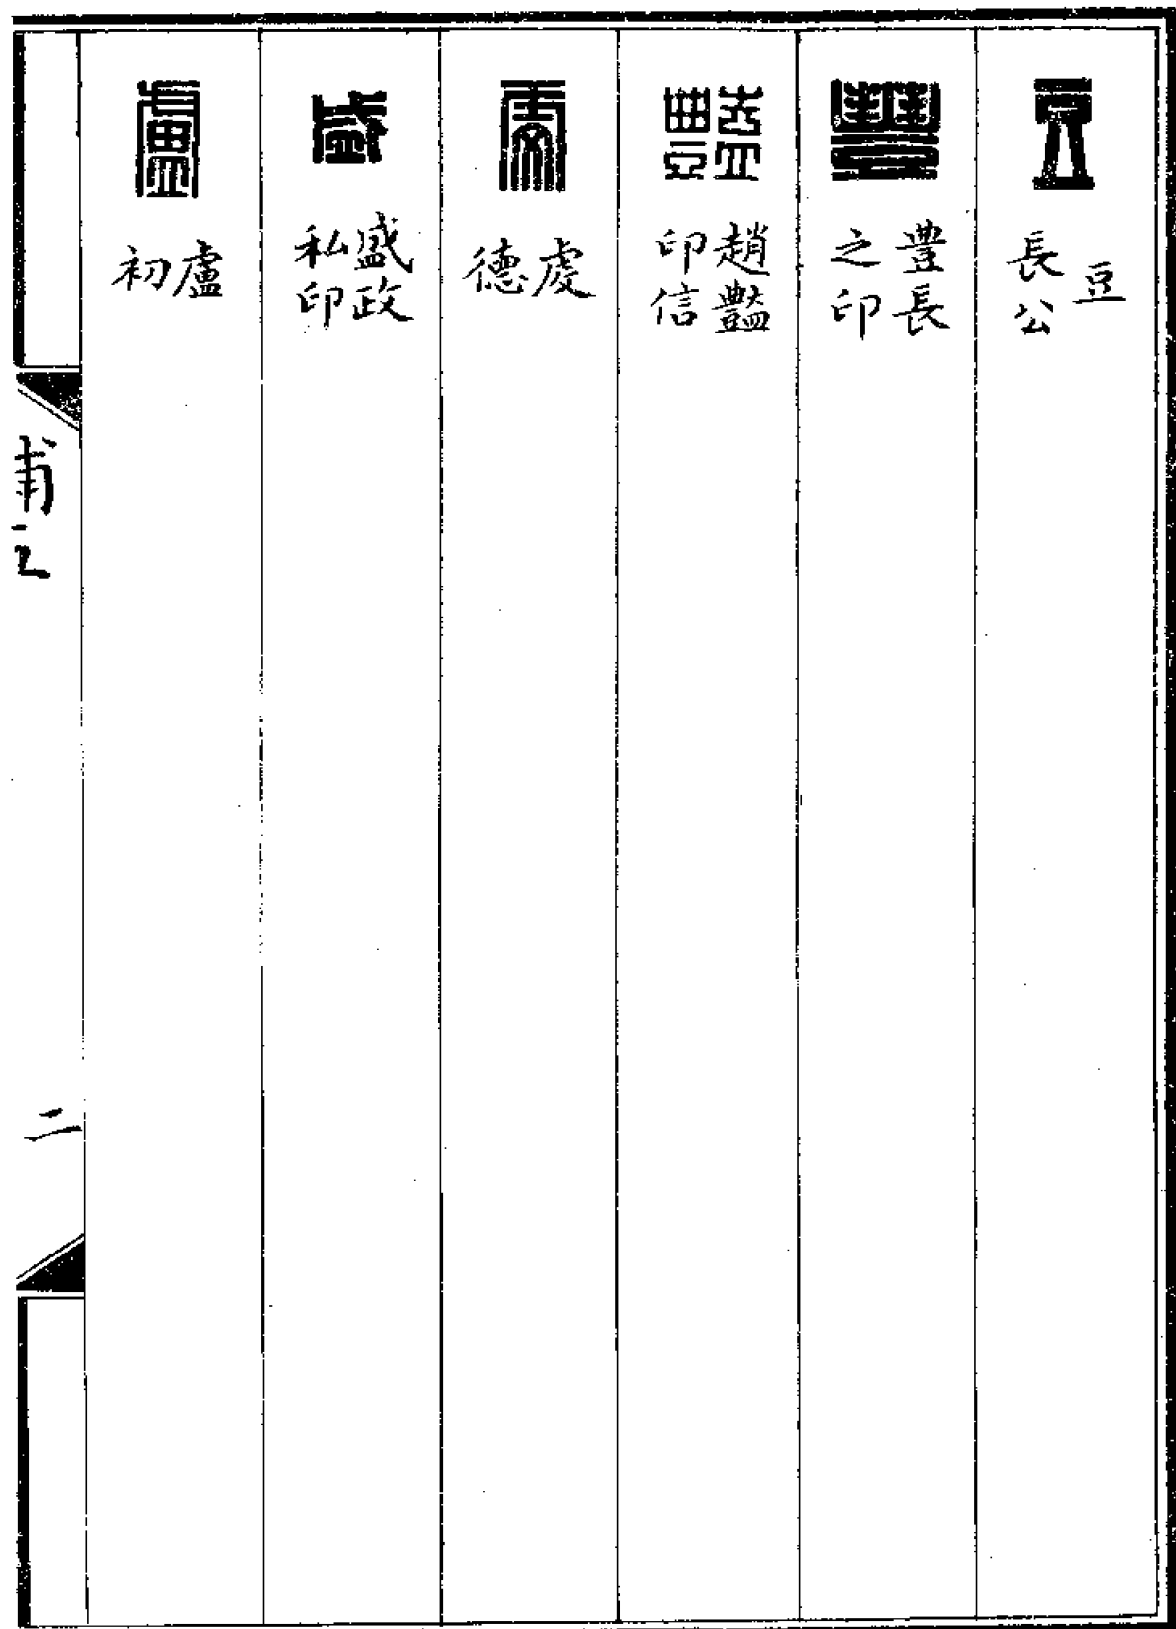 豆
豆
長公
豐
豐長
之印
豔
趙豔
印信
虔
虔
德
盛
盛政
私印
盧
盧
初
補
二